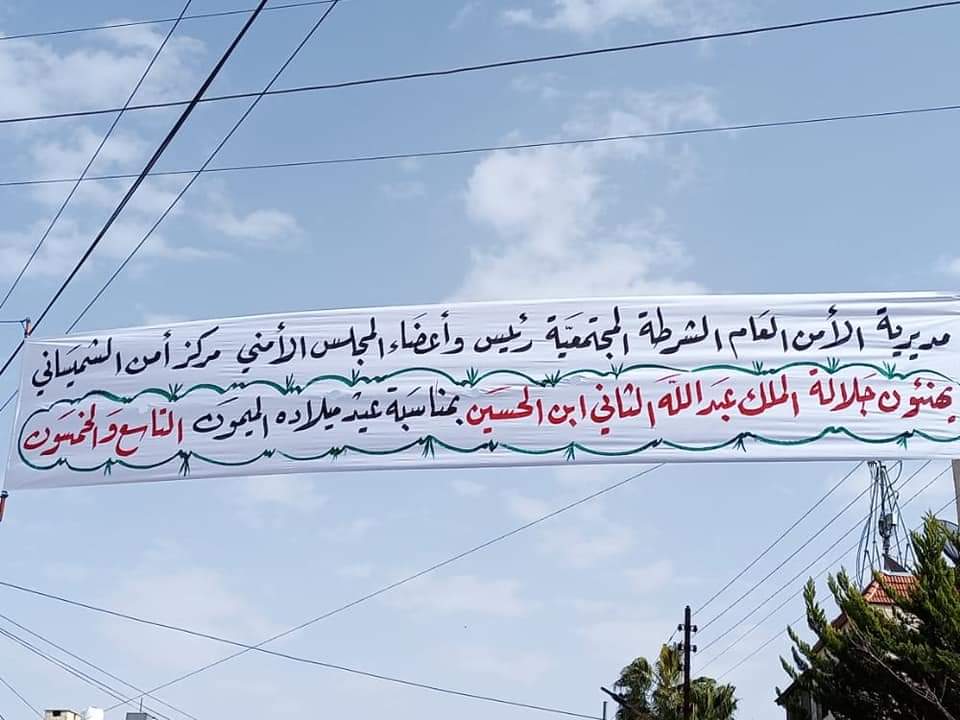 مديرية الأمن العام الشرطة المجتمعية رئيس وأعضاء المجلس الأمني مركز أمن الشميساني
يهنئون جلالة الملك عبد الله الثاني ابن الحسين بمناسبة عيد ميلاده الميمون التاسع والخمسون